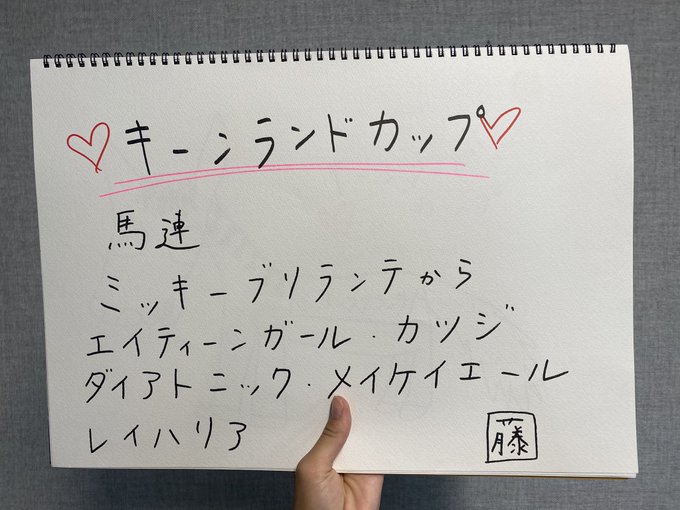 キーンランドカップ
馬連
ミッキーブリランテから
エイティーンガール・カツジ
ダイアトニック・メイケイエール
レイハリア
藤